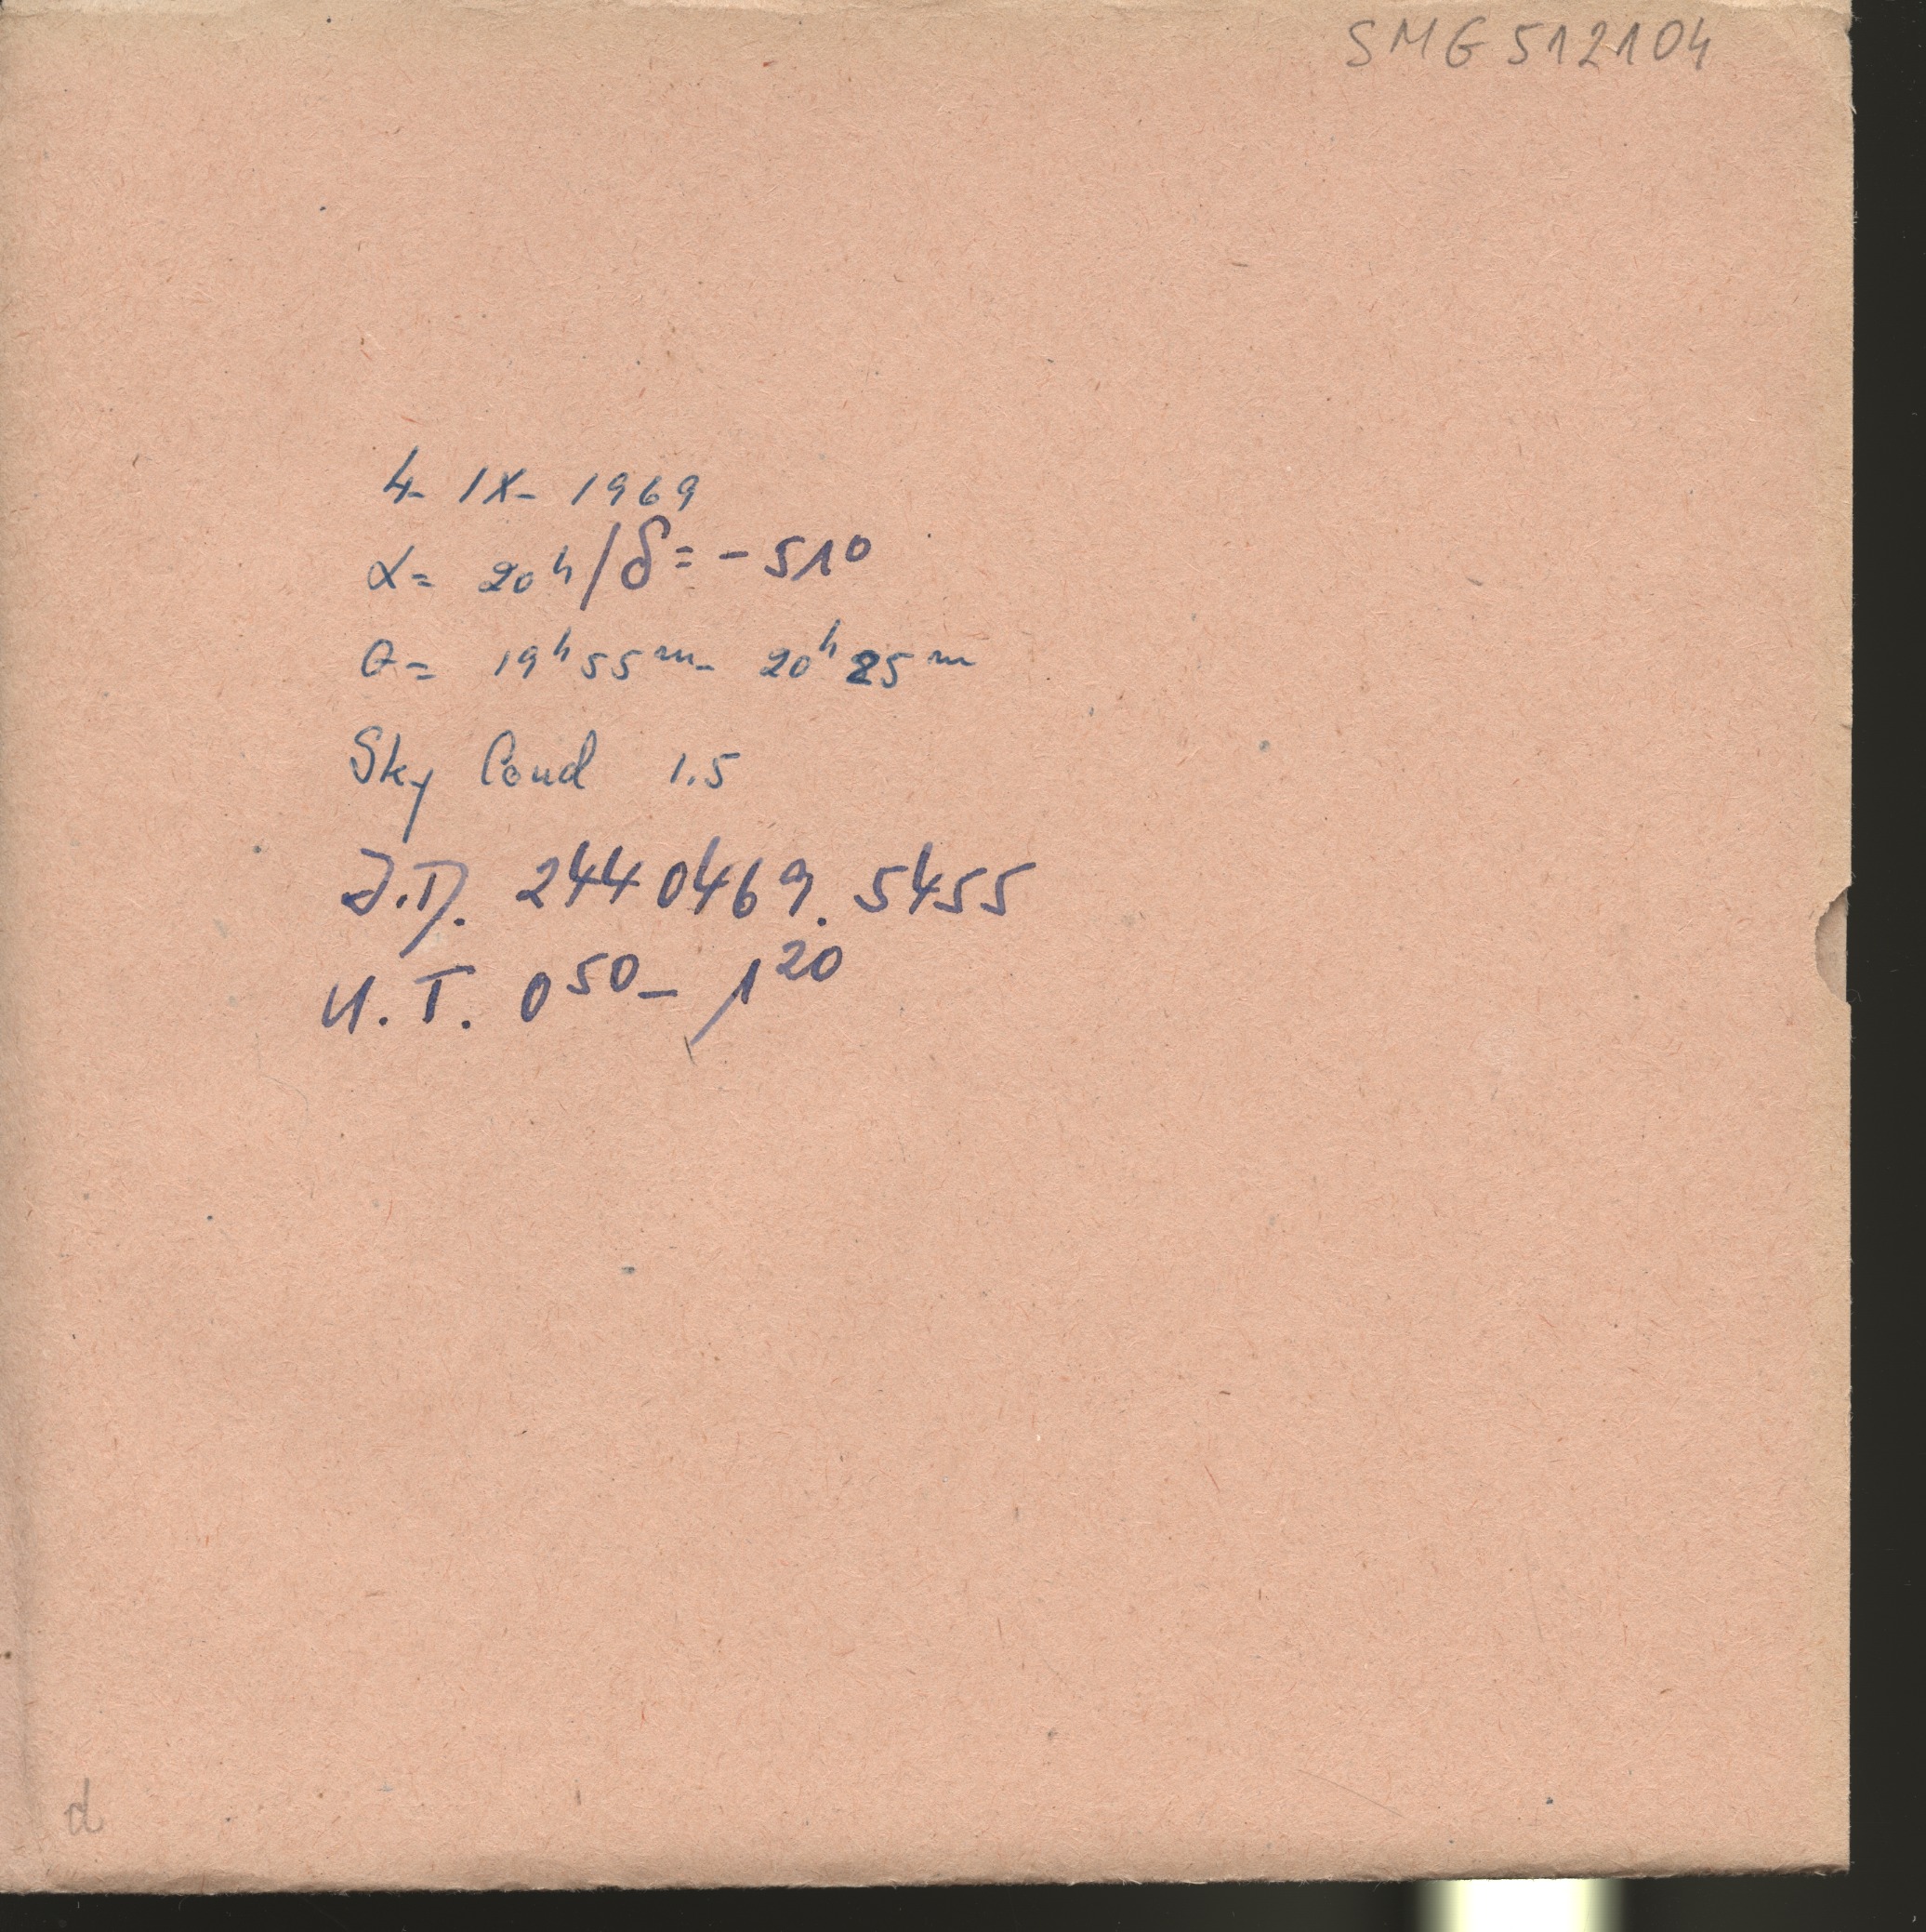 SMG 512104
4- IX- 1969
α= 20ʰ/δ= -51°
θ= 19ʰ55ᵐ- 20ʰ25ᵐ
Sky Cond 1.5
J.D. 2440469.5455
U.T. 0⁵⁰- 1²⁰
d